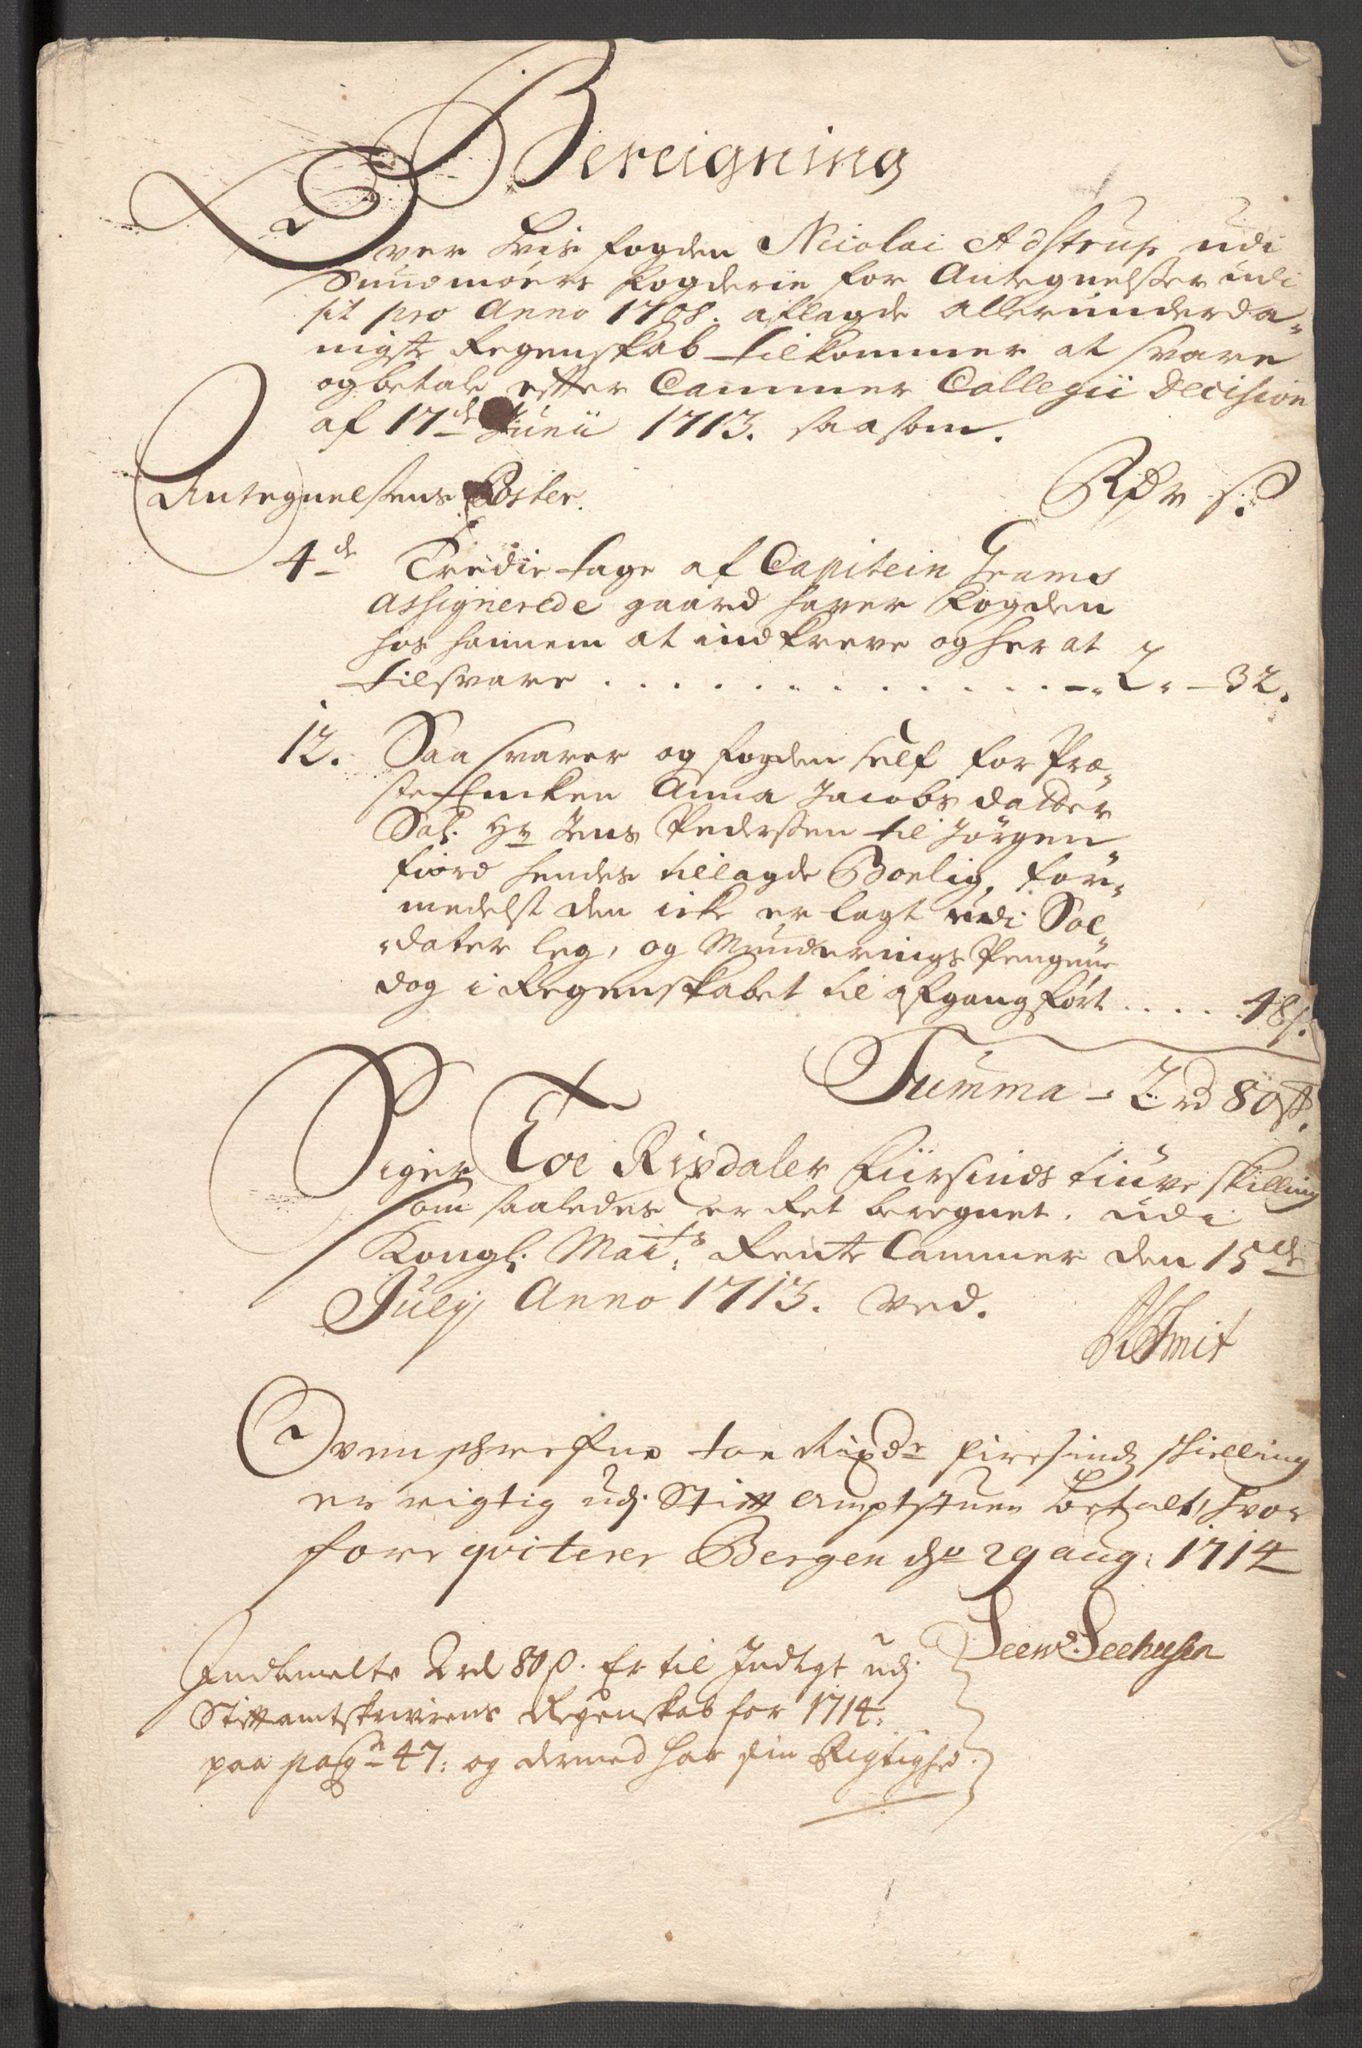 Bereigning
Over hvis fogden Nicolai Astrup udi
Sundmøers fogderie for Antegnelser udi
sit pro Anno 1708. aflagde allerunderda-
nigste Regenskab tilkommer at svare
og betale efter Cammer Collegii Decision
af 17de Junii 1713. saasom.
Antegnelsens Poster. Rdr s.
4de Tredie tage af Capitein Grams
assignerede gaard haver fogden
hos hannem at indkreve og her at
tilsvare . . . . . . . . . . . . . . . 2 - 32.
12. Saa svarer og fogden self for Præ-
ste Encken Anna Jacobs datter
Sal. Hr Jens Pedersen til Jørgen-
fiord hendes tillagde Boelig, for-
medelst den icke er lagt udi Sol-
dater leg, og Munderings Pengene
dog i Regenskabet til afgang ført . . . . . 48 s.
Summa - 2 rd 80 s.
Siger Toe Rixdaler fiirsinds tiuve skilling
som saaledes er ret beregnet. udi
Kongl. Maits. Rente Cammer den 15de
July Anno 1713. Ved.
Smit
Ovenschrefne toe Rixdr firesinds skielling
er rigtig udj Stift Amptstuen betalt, hvor
fore qviterer Bergen dn 29 aug: 1714
Seehusen
Indbemelte 2 rd 80 s. Er til Indtgt udj
Stiftamtskrivrens Regenskab for 1714.
paa pag 47: og dermed har sin Rigtighed.